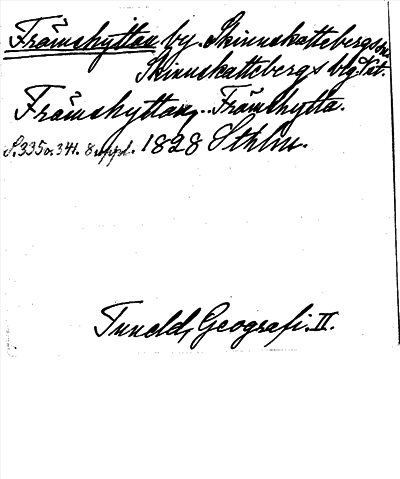 Främshyttan by. Skinnskattebergs sn
Skinnskattebergs blg. Vät.
Främshyttan, .. Främshytta.
S. 335 o. 341. 8 uppl. 1828 Sthlm.
Tuneld, Geografi. II.